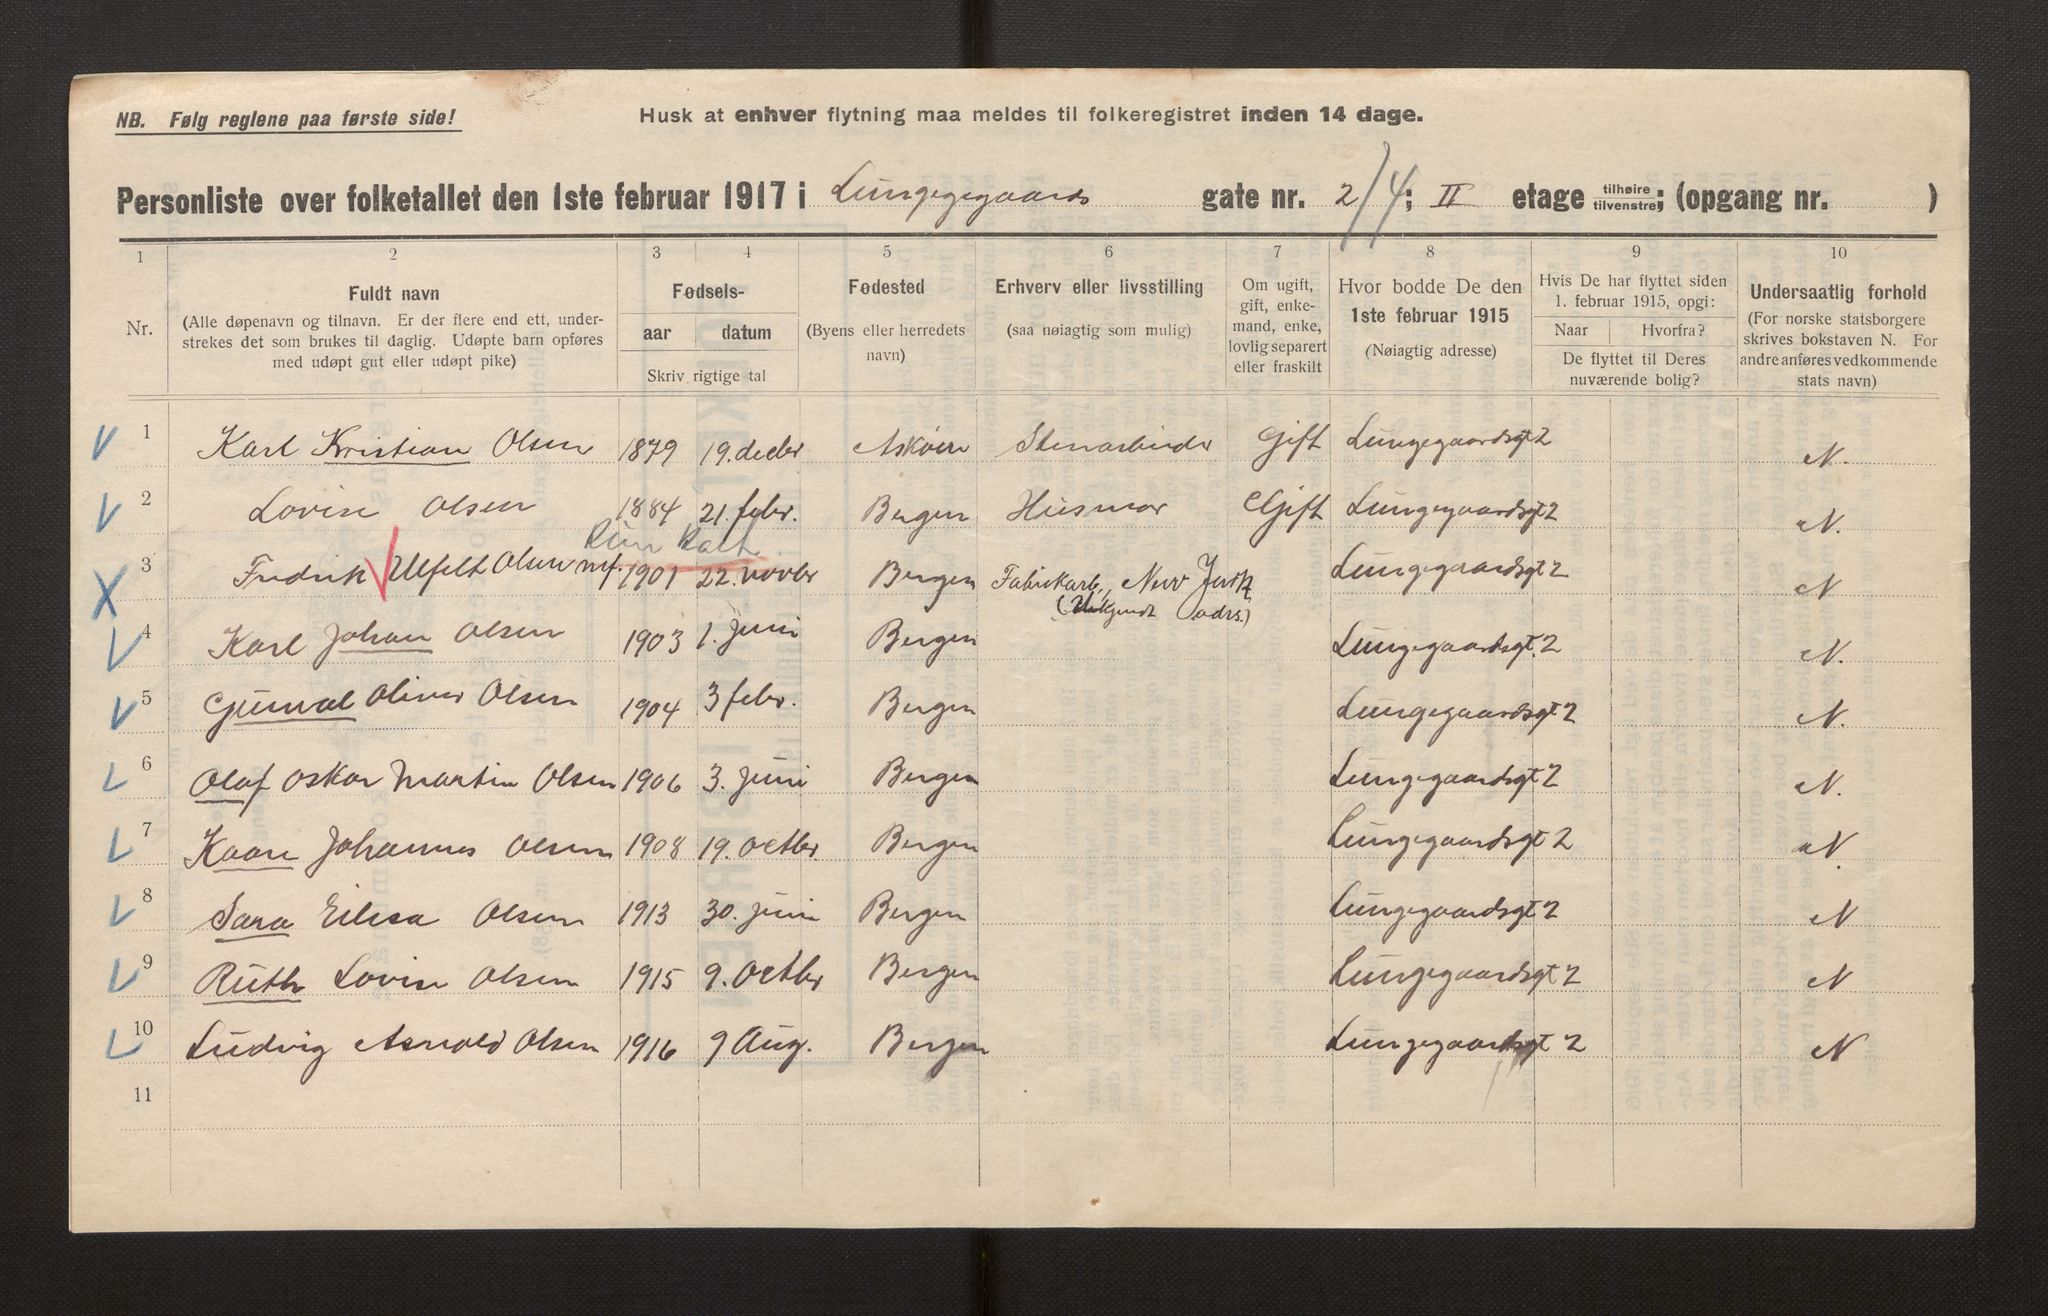 NB. Følg reglene paa første side!
Husk at enhver flytning maa meldes til folkeregistret inden 14 dage.
Personliste over folketallet den 1ste februar 1917 i Lungegaards gate nr. 2/4; II etage tilhøire tilvenstre; (opgang nr. )
1 2 3 4 5 6 7 8 9 10
Nr.
Fuldt navn
(Alle døpenavn og tilnavn. Er der flere end ett, under-
strekes det som brukes til daglig. Udøpte barn opføres
med udøpt gut eller udøpt pike)
Fødsels-
aar datum
Skriv rigtige tal
Fødested
(Byens eller herredets
navn)
Erhverv eller livsstilling
(saa nøiagtig som mulig)
Om ugift,
gift, enke-
mand, enke,
lovlig separert
eller fraskilt
Hvor bodde De den
1ste februar 1915
(Nøiagtig adresse)
Hvis De har flyttet siden
1. februar 1915, opgi:
Naar Hvorfra?
De flyttet til Deres
nuværende bolig?
Undersaatlig forhold
(For norske statsborgere
skrives bokstaven N. For
andre anføres vedkommende
stats navn)
1 Karl Kristian Olsen 1879 19. decbr Askøen Stenarbeider Gift Lungegaardsgt 2 N.
2 Lovise Olsen 1884 21. febr. Bergen Husmor Gift Lungegaardsgt 2 N.
3 Fredrik Olsen 1901 22. novbr Bergen Fabrikarb., New Jork Lungegaardsgt 2 N
(Ukjendt adrs.)
4 Karl Johan Olsen 1903 1. Juni Bergen Lungegaardsgt. 2 N.
5 Gunval Oliver Olsen 1904 3 febr. Bergen Lungegaardsgt 2 N.
6 Olaf Oskar Martin Olsen 1906 3. Juni Bergen Lungegaardsgt 2 N.
7 Kaare Johannes Olsen 1908 19. Octbr Bergen Lungegaardsgt 2 N.
8 Sara Elisa Olsen 1913 30. Juni Bergen Lungegaardsgt 2 N
9 Ruth Lovise Olsen 1915 9. Octbr Bergen Lungegaardsgt 2 N
10 Ludvig Arnold Olsen 1916 9 Aug. Bergen Lungegaardsgt 2 N
11